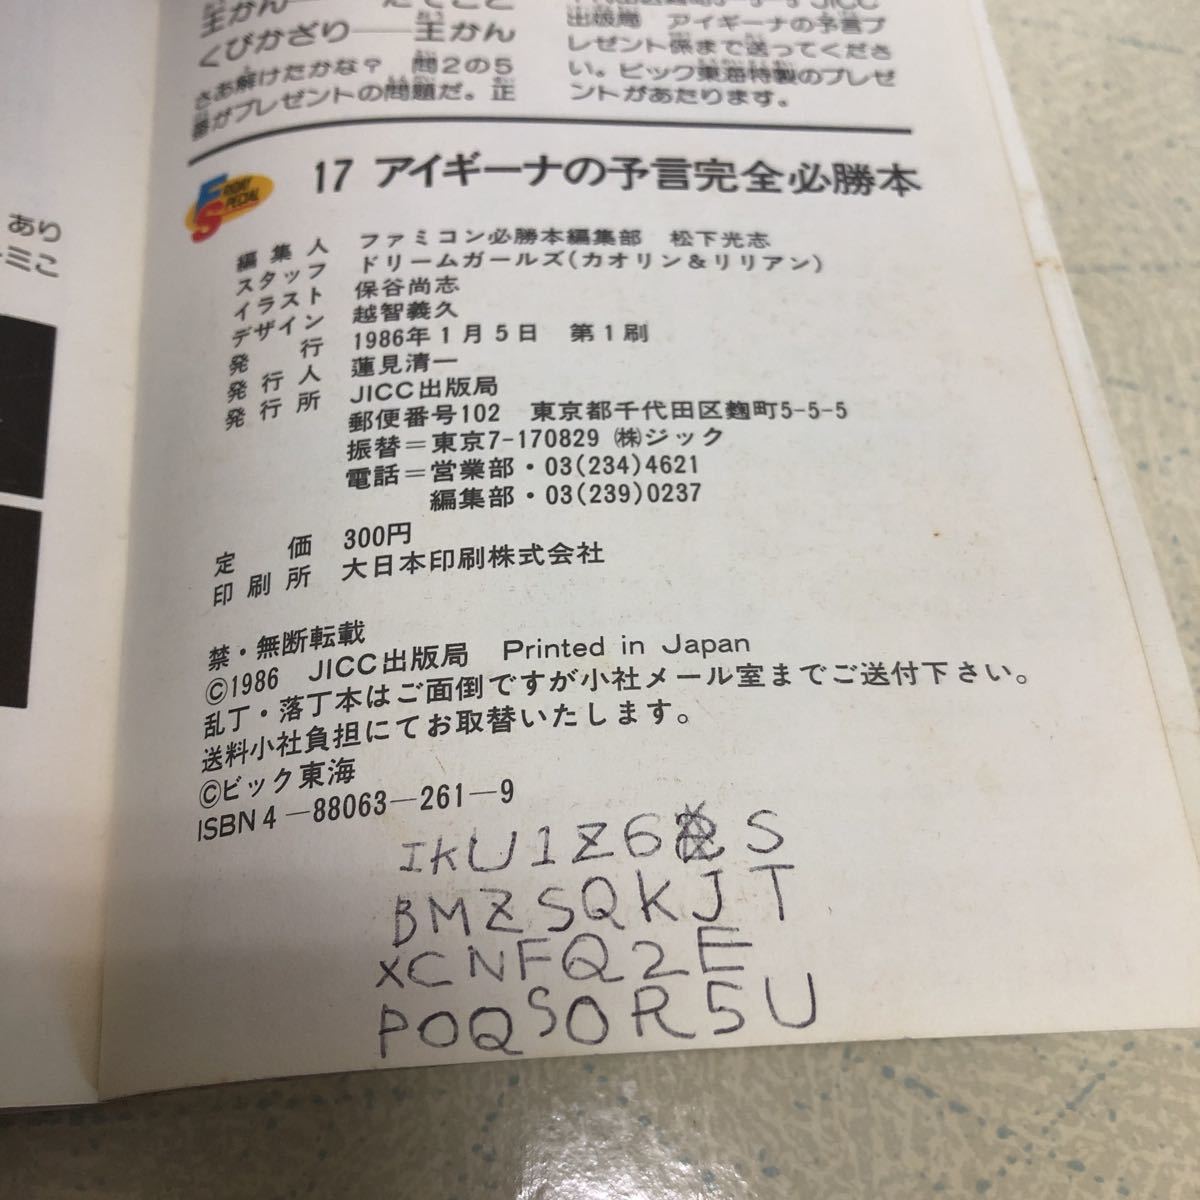 くびかざり――王かん
さあ解けたかな? 問2の5
番がプレゼントの問題だ。正
出版局 アイギーナの予言プ
レゼント係まで送ってくださ
い。ビック東海特製のプレゼ
ントがあたります。
あり
ーミこ
FRIDAY SPECIAL
17 アイギーナの予言完全必勝本
編集人 ファミコン必勝本編集部 松下光志
スタッフ ドリームガールズ(カオリン&リリアン)
イラスト 保谷尚志
デザイン 越智義久
発行 1986年1月5日 第1刷
発行人 蓮見清一
発行所 JICC出版局
郵便番号102 東京都千代田区麹町5-5-5
振替=東京7-170829 ㈱ジック
電話=営業部・03(234)4621
編集部・03(239)0237
定価 300円
印刷所 大日本印刷株式会社
禁・無断転載
©1986 JICC出版局 Printed in Japan
乱丁・落丁本はご面倒ですが小社メール室までご送付下さい。
送料小社負担にてお取替いたします。
©ビック東海
ISBN4-88063-261-9
IKU1Z6 S
BMZSQKJT
XCNFQ2E
POQSOR5U